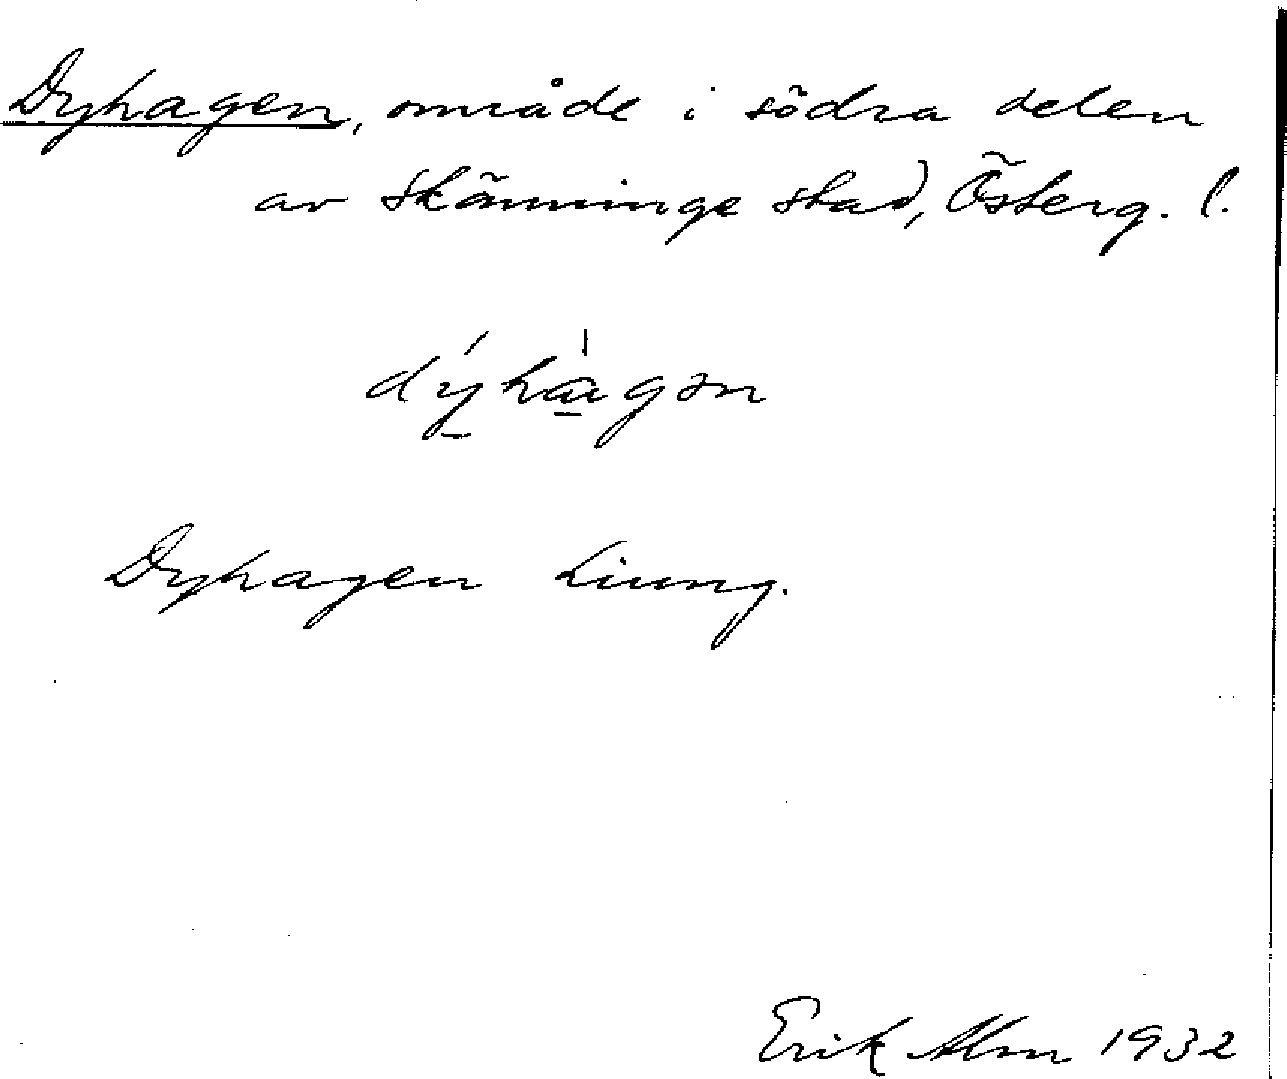 Dyhagen, område i södra delen
av Skänninge stad, Österg. l.
dýhàgən
Dyhagen Liung.
Erik Alm 1932